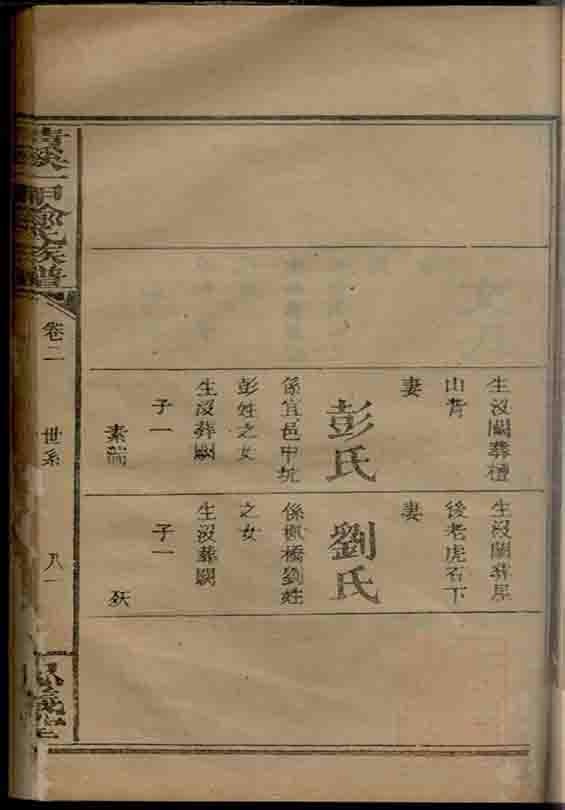 生沒闕葬檀
山背
妻
彭氏
係宜邑中坑
彭姓之女
生沒葬闕
子一
素瑞
生沒闕葬屋
後老虎石下
妻
劉氏
係楓橋劉姓
之女
生沒葬闕
子一
氏族譜
卷二
世系